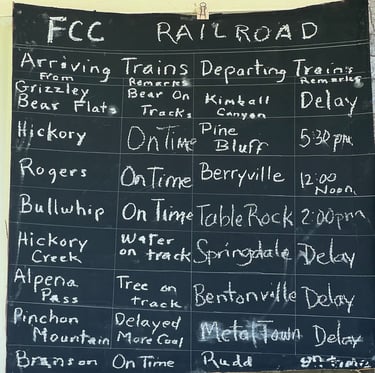 FCC RAILROAD
Arriving Trains Departing Trains
From Remarks Remarks
Grizzley Bear Flats Bear On Tracks Kimball Canyon Delay
Hickory On Time Pine Bluff 5:30 pm
Rogers On Time Berryville 12:00 Noon
Bullwhip On Time Table Rock 2:00 pm
Hickory Creek Water on track Springdale Delay
Alpena Pass Tree on track Bentonville Delay
Pinchon Mountain Delayed More Coal Metal Town Delay
Branson On Time Rudd